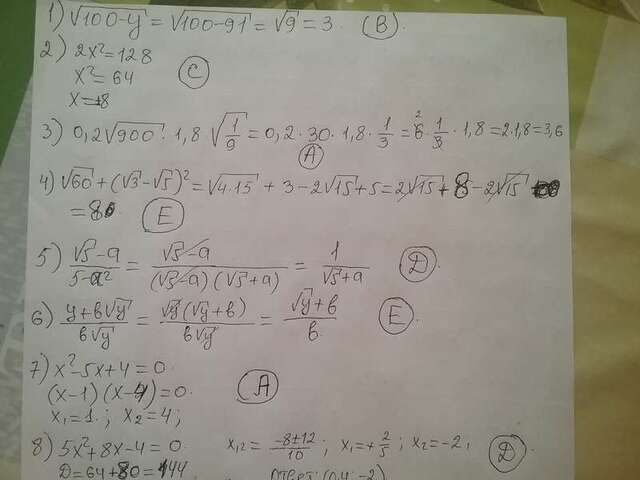 1) √100-y = √100-91 = √9 = 3. (B).
2) 2x²=128
x²=64 (C)
x=±8
3) 0,2√900 · 1,8 · √1/9 = 0,2 · 30 · 1,8 · 1/3 = 6 · 1/3 · 1,8 = 2·1,8 = 3,6
(A)
4) √60 + (√3-√5)² = √4·15 + 3-2√15+5 = 2√15 + 8 - 2√15
= 8. (E)
5) √5-a / 5-a² = √5-a / (√5-a)(√5+a) = 1 / √5+a (D).
6) y+b√y / b√y = √y(√y+b) / b√y = √y+b / b. (E).
7) x²-5x+4=0.
(x-1)(x-4)=0. (A)
x₁=1.; x₂=4;
8) 5x²+8x-4=0. x₁,₂ = -8±12 / 10; x₁=+2/5; x₂=-2, (D).
D=64+80=144. Ответ: (0,4; -2)